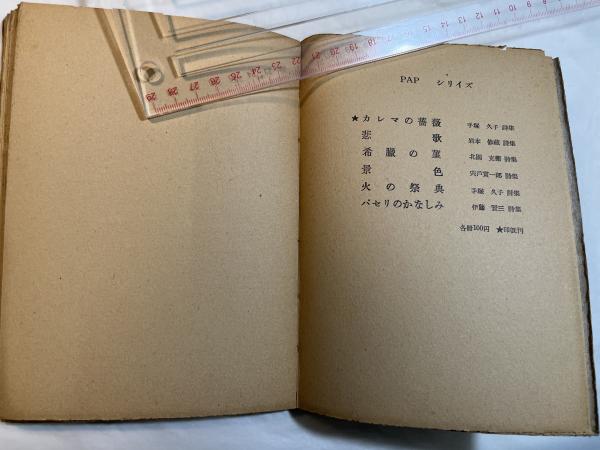 PAP シリイズ
★カレマの薔薇 手塚 久子 詩集
悲歌 岩本 修蔵 詩集
希臘の菫 北園 克衛 詩集
景色 宍戸貫一郎 詩集
火の祭典 手塚 久子 詩集
パセリのかなしみ 伊藤 賢三 詩集
各冊100円 ★印既刊
29 28 27 26 25 24 23 22 21 20 19 18
10 9 8 7